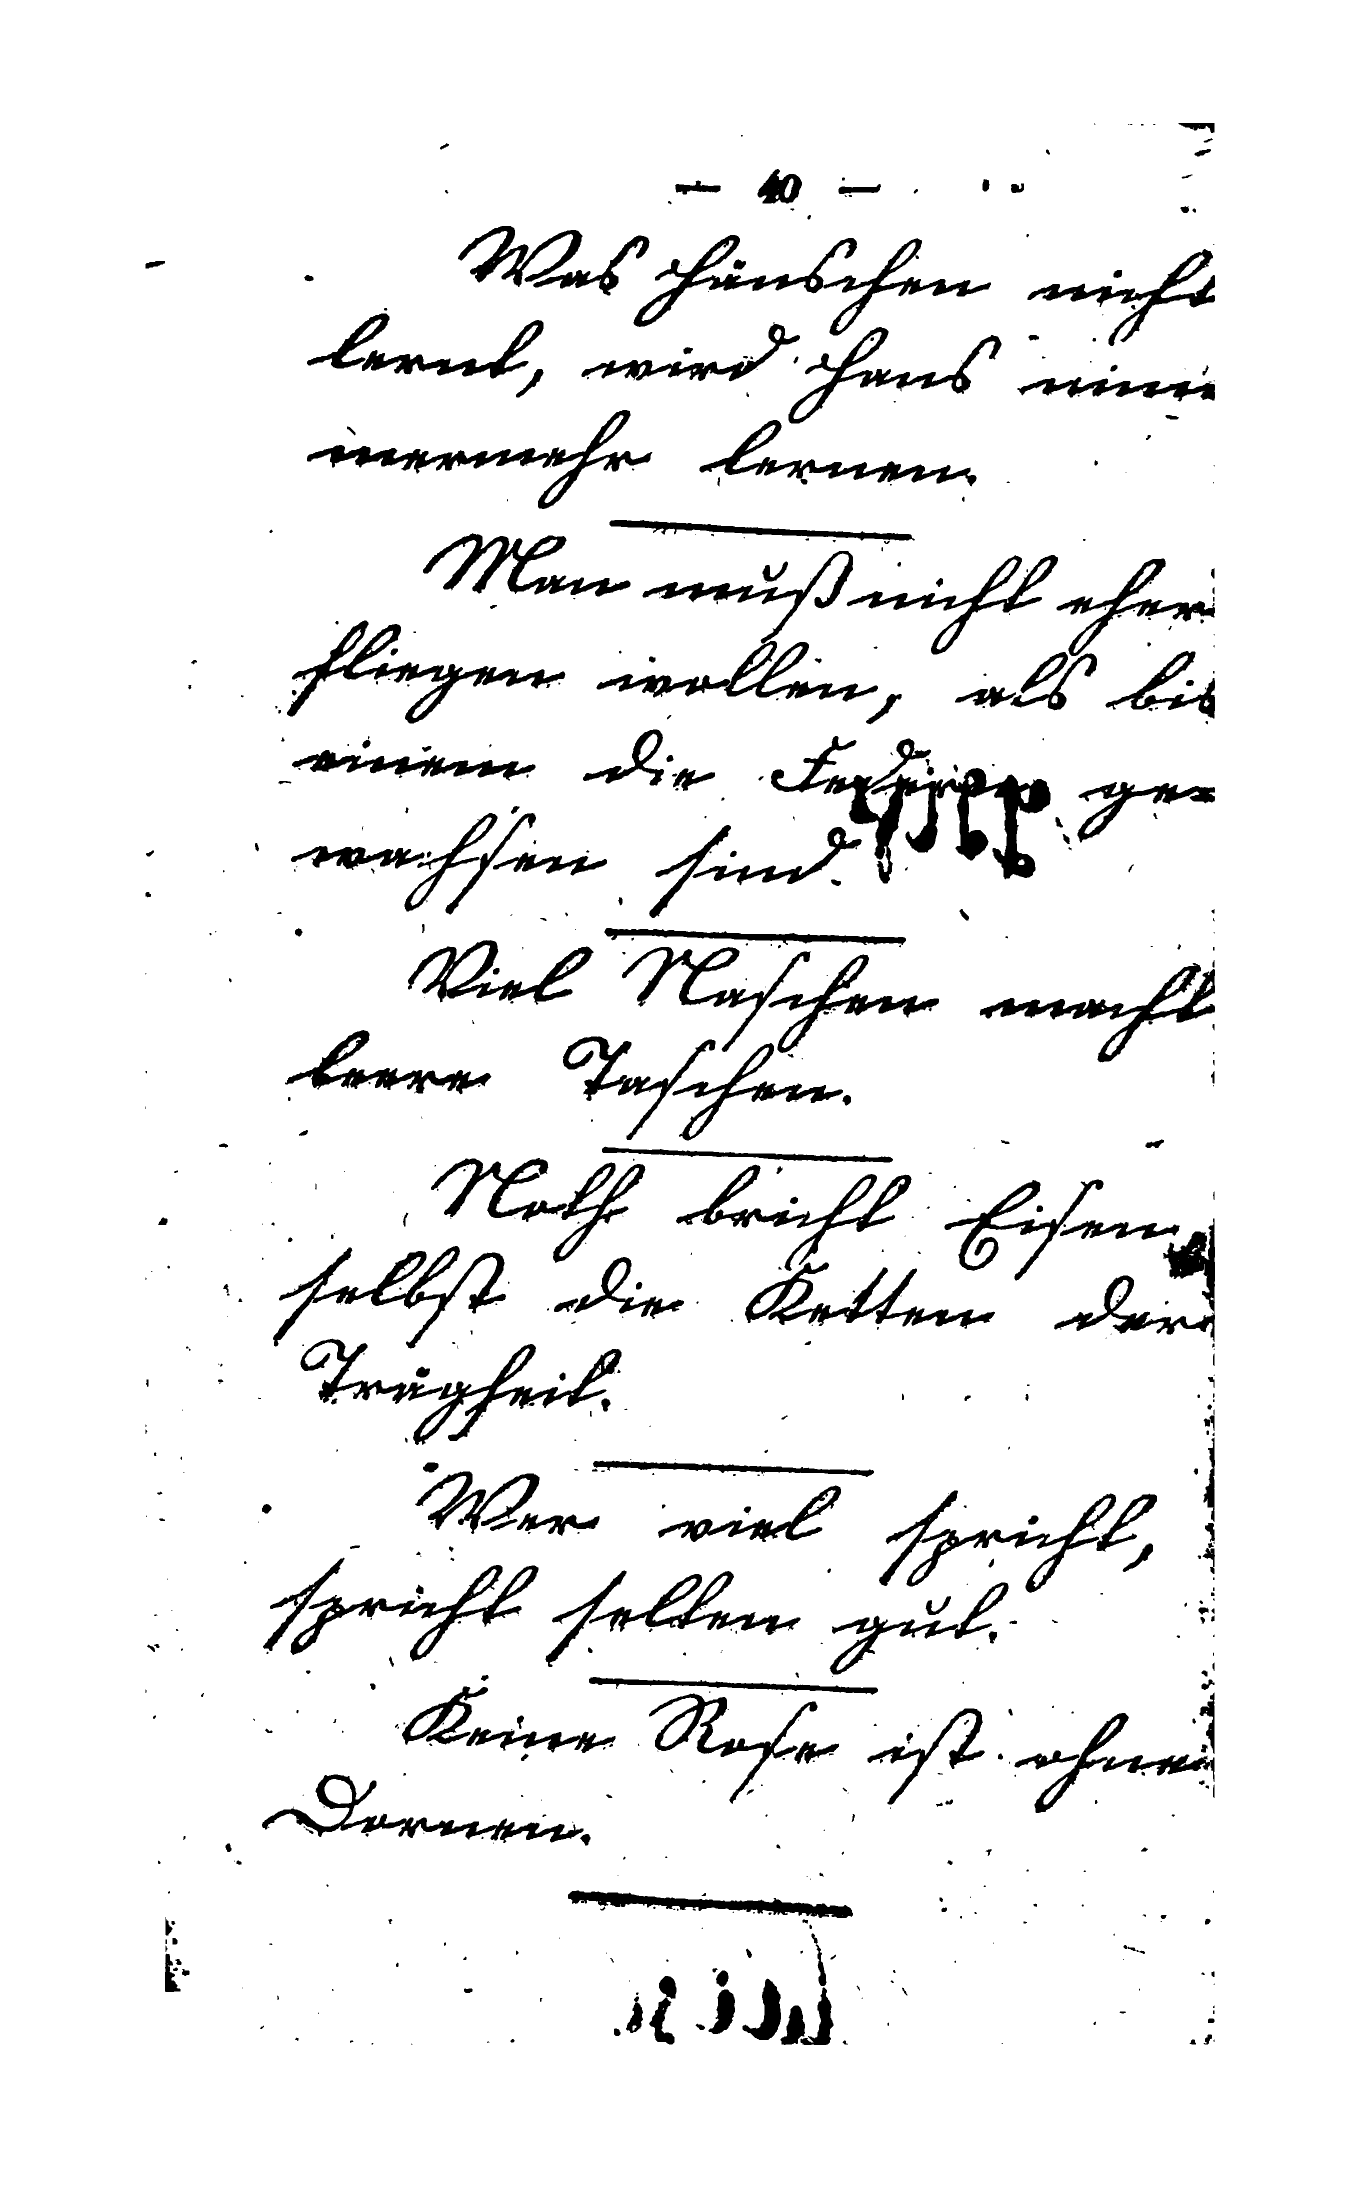 — 40 —
Was Hänschen nicht
lernt, wird Hans nim-
mermehr lernen.
Man muß nicht eher
fliegen wollen, als bis
einem die Federn ge-
wachsen sind.
Viel Naschen macht
leere Taschen.
Noth bricht Eisen
selbst die Ketten der
Trägheit.
Wer viel spricht,
spricht selten gut.
Keine Rose ist ohne
Dornen.